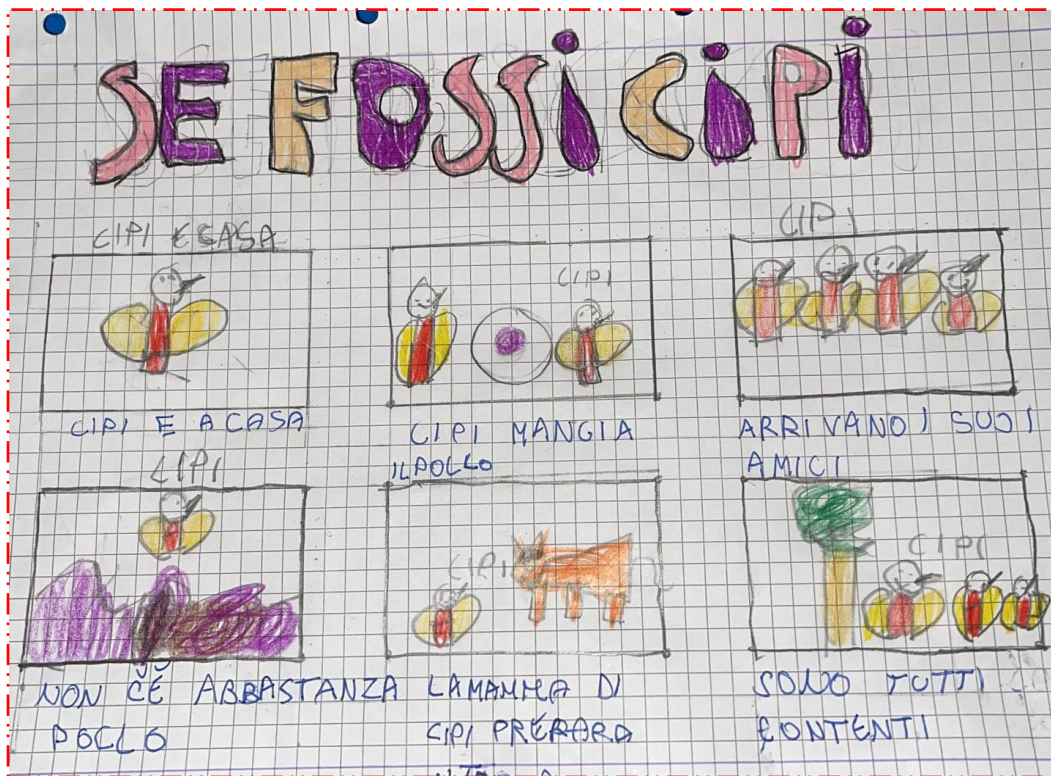 SE FOSSI CIPI
CIPI E CASA
CIPI E A CASA
CIPI
CIPI MANGIA
IL POLLO
CIPI
ARRIVANO I SUOI
AMICI
CIPI
NON C'È ABBASTANZA
POLLO
CIPI
LA MAMMA DI
CIPI PREPARA
CIPI
SONO TUTTI
CONTENTI